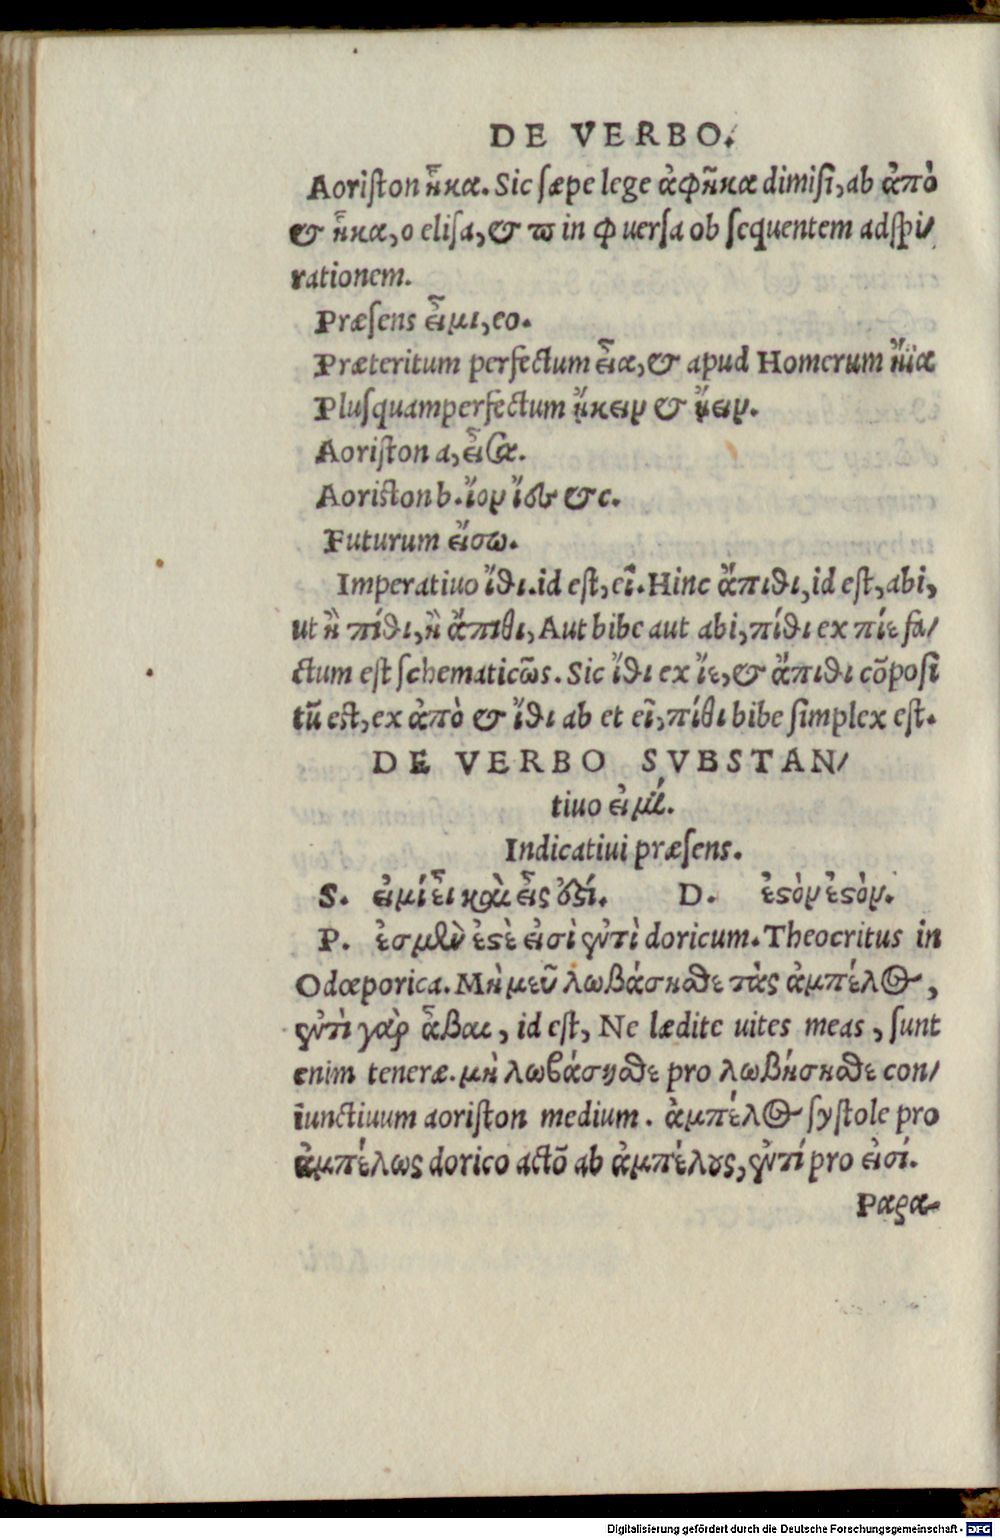 DE VERBO.
Aoriſton ἧκα. Sic ſæpe lege ἀφῆκα dimiſi, ab ἀπὸ
& ἧκα, o eliſa, & ϖ in φ uerſa ob ſequentem adſpi/
rationem.
Præſens εἶμι, eo.
Præteritum perfectum εἶα, & apud Homerum ἤϊα
Pluſquamperfectum ᾔκειν & ᾔειν.
Aoriſton a, εἶσα.
Aoriſton b. ἴον ἴδυ &c.
Futurum εἴσω.
Imperatiuo ἴθι. id eſt, eî. Hinc ἄπιθι, id eſt, abi,
ut ἢ πίθι, ἢ ἄπιθι, Aut bibe aut abi, πίθι ex πίε fa/
ctum eſt ſchematicῶs. Sic ἴθι ex ἴε, & ἄπιθι cõpoſi
tũ eſt, ex ἀπὸ & ἴθι ab et eĩ, πίθι bibe ſimplex eſt.
DE VERBO SVBSTAN/
tiuo εἰμί.
Indicatiui præſens.
S. εἰμί εἶ καὶ εἶς ἐστί. D. ἐστὸν ἐστὸν.
P. ἐσμὲν ἐστὲ εἰσὶ ἐντὶ doricum. Theocritus in
Odœporica. Μὴ μεῦ λωβάσησθε τὰς ἀμπέλος,
ἐντὶ γὰρ ἇβαι, id eſt, Ne lædite uites meas, ſunt
enim teneræ. μὴ λωβάσησθε pro λωβήσησθε con/
iunctiuum aoriſton medium. ἀμπέλος ſyſtole pro
ἀμπέλως dorico actõ ab ἀμπέλους, ἐντί pro εἰσί.
Para-
Digitalisierung gefördert durch die Deutsche Forschungsgemeinschaft - DFG